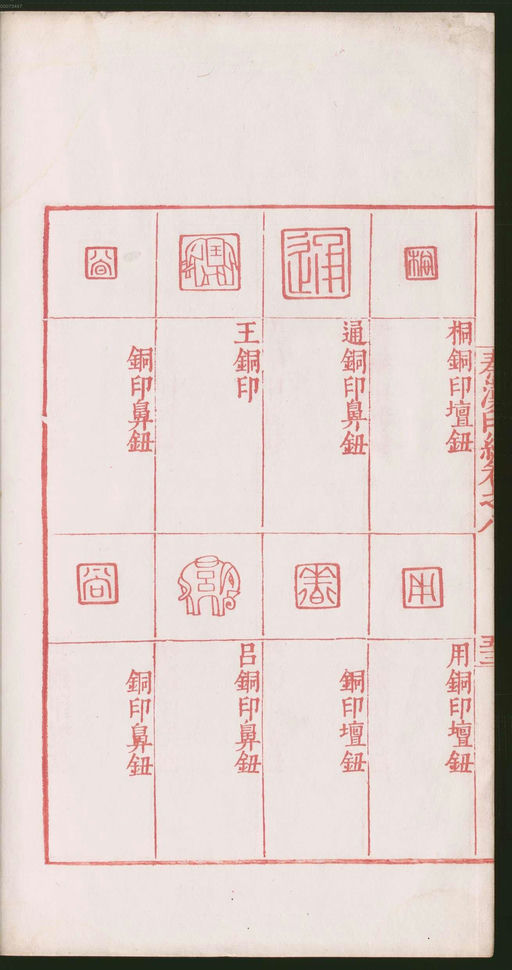 00073447
秦漢印統卷之八
五三
桐
桐銅印壇鈕
通
通銅印鼻鈕
王
王銅印
銅印鼻鈕
用
用銅印壇鈕
銅印壇鈕
呂
呂銅印鼻鈕
銅印鼻鈕